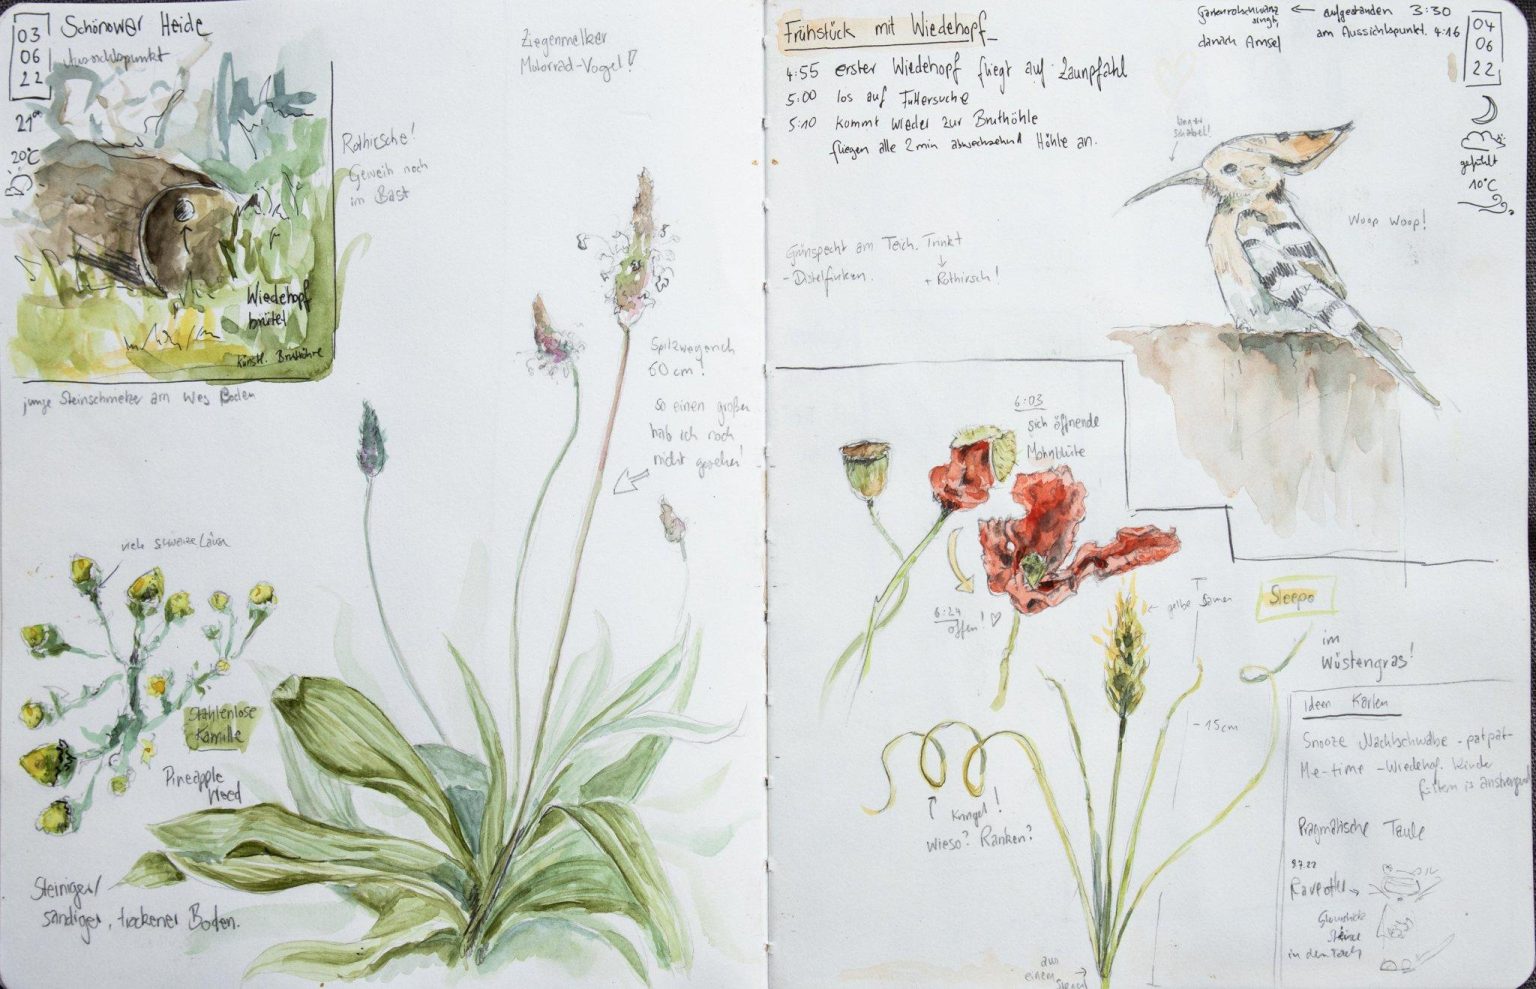 03
06
22
Schönower Heide
Aussichtspunkt
21°
20°C
Wiedehopf
brütet
künstl. Bruthöhle
junge Steinschmetzer am Weg Boden
Ziegenmelker
Motorrad-Vogel!
Rothirsche!
Geweih noch
im Bast
Spitzwegerich
60 cm!
so einen großen
hab ich noch
nicht gesehen!
viele schwarze Läuse
Strahlenlose
Kamille
Pineapple
Weed
Steiniger/
sandiger, trockener Boden.
Frühstück mit Wiedehopf
4:55 erster Wiedehopf fliegt auf Zaunpfahl
5:00 los auf Futtersuche
5:10 kommt wieder zur Bruthöhle
fliegen alle 2 min abwechselnd Höhle an.
Gartenrotschwanz
singt,
danach Amsel
← aufgestanden 3:30
am Aussichtspunkt. 4:16
04
06
22
gefühlt
10°C
Schnabel!
Woop Woop!
Grünspecht am Teich. Trinkt
- Distelfinken.
+ Rothirsch!
6:03
sich öffnende
Mohnblüte
6:24
offen!
gelbe Samen
Sleepo
im
Wüstengras!
- 15cm
Kringel!
Wieso? Ranken?
aus
einem
Ideen Karten
Snooze Nachtschwalbe - patpat-
Me-time - Wiedehopf. Kinder
füttern is anstrengend
Pragmatische Taule
Raveotter
Glowstick
Steine
in den Tasch